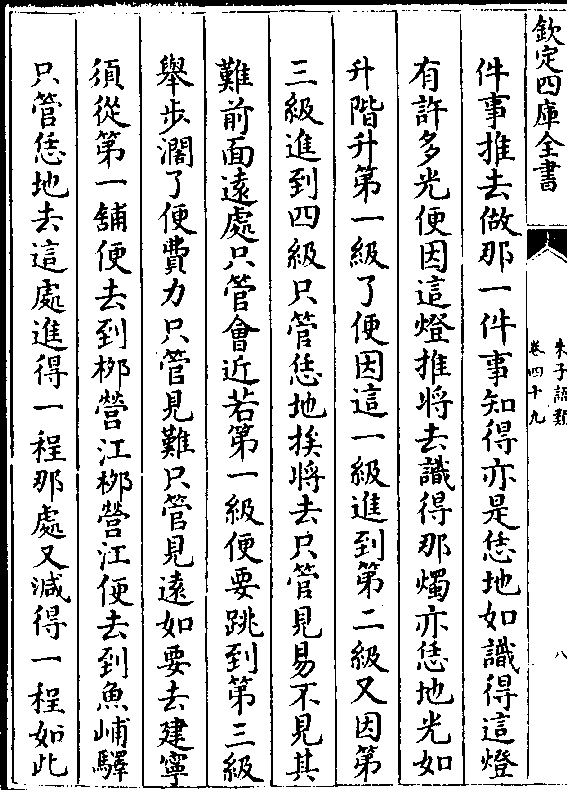 欽定四庫全書
朱子語類
卷四十九
八
件事推去做那一件事知得亦是恁地如識得這燈
有許多光便因這燈推將去識得那燭亦恁地光如
升階升第一級了便因這一級進到第二級又因第
三級進到四級只管恁地挨將去只管見易不見其
難前面遠處只管會近若第一級便要跳到第三級
舉步濶了便費力只管見難只管見遠如要去建寧
須從第一舖便去到栁營江栁營江便去到魚峬驛
只管恁地去這處進得一程那處又減得一程如此